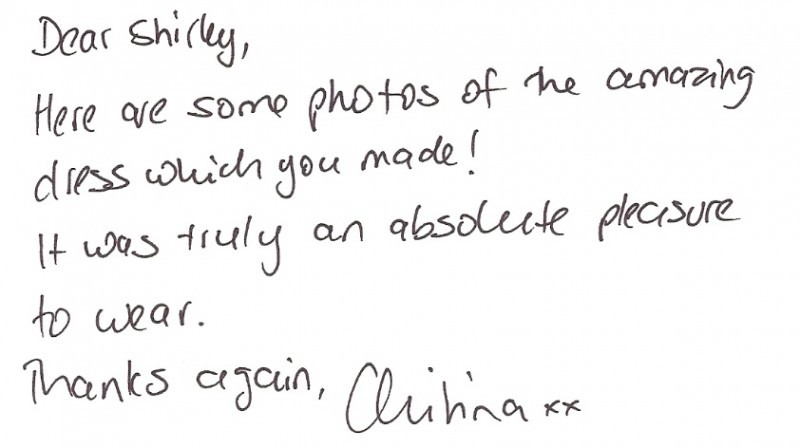 Dear Shirley,
Here are some photos of the amazing
dress which you made!
It was truly an absolute pleasure
to wear.
Thanks again, Christina xx